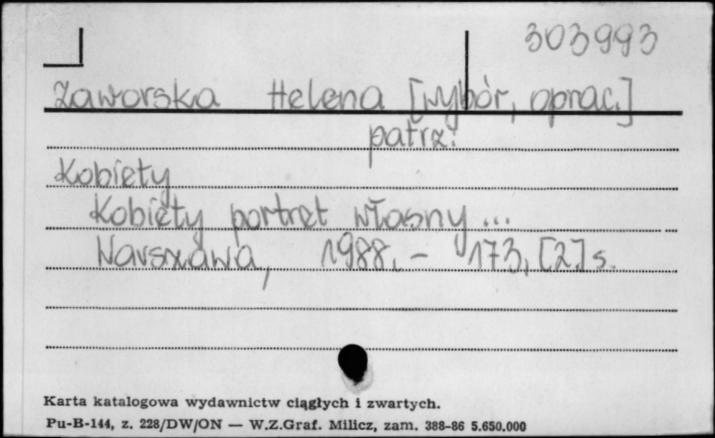 303993
Zaworska Helena [wybór, oprac.]
patrz:
Kobiety
Kobiety portret własny...
Warszawa, 1988. - 173, [2] s.
Karta katalogowa wydawnictw ciągłych i zwartych.
Pu-B-144, z. 228/DW/ON — W.Z.Graf. Milicz, zam. 388-86 5.650.000